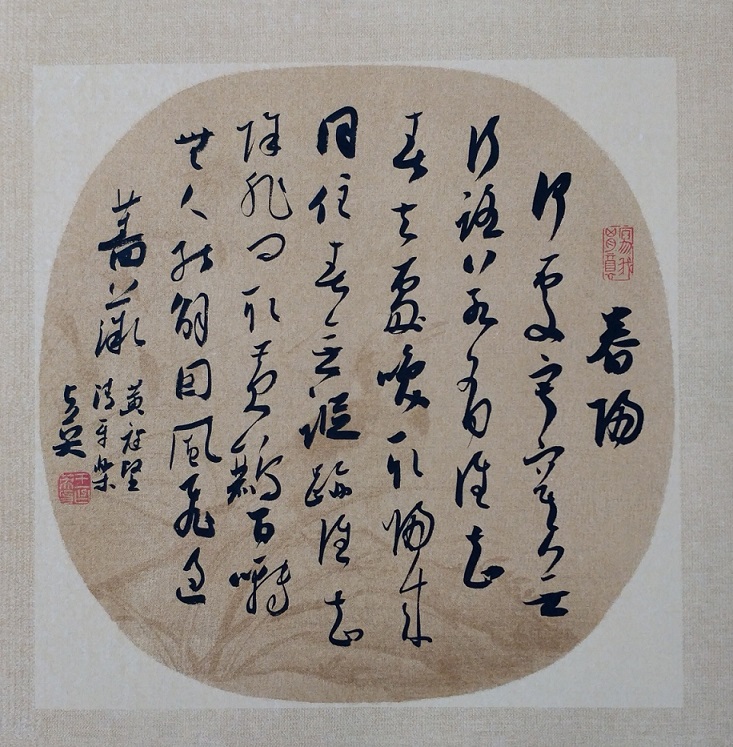 春歸
何處寂寞無
行路若有誰知
春去處喚取歸來
同住春无蹤跡誰知
除非問取黃鸝百囀
無人能解因風飛過
薔薇
黃庭堅
清平樂